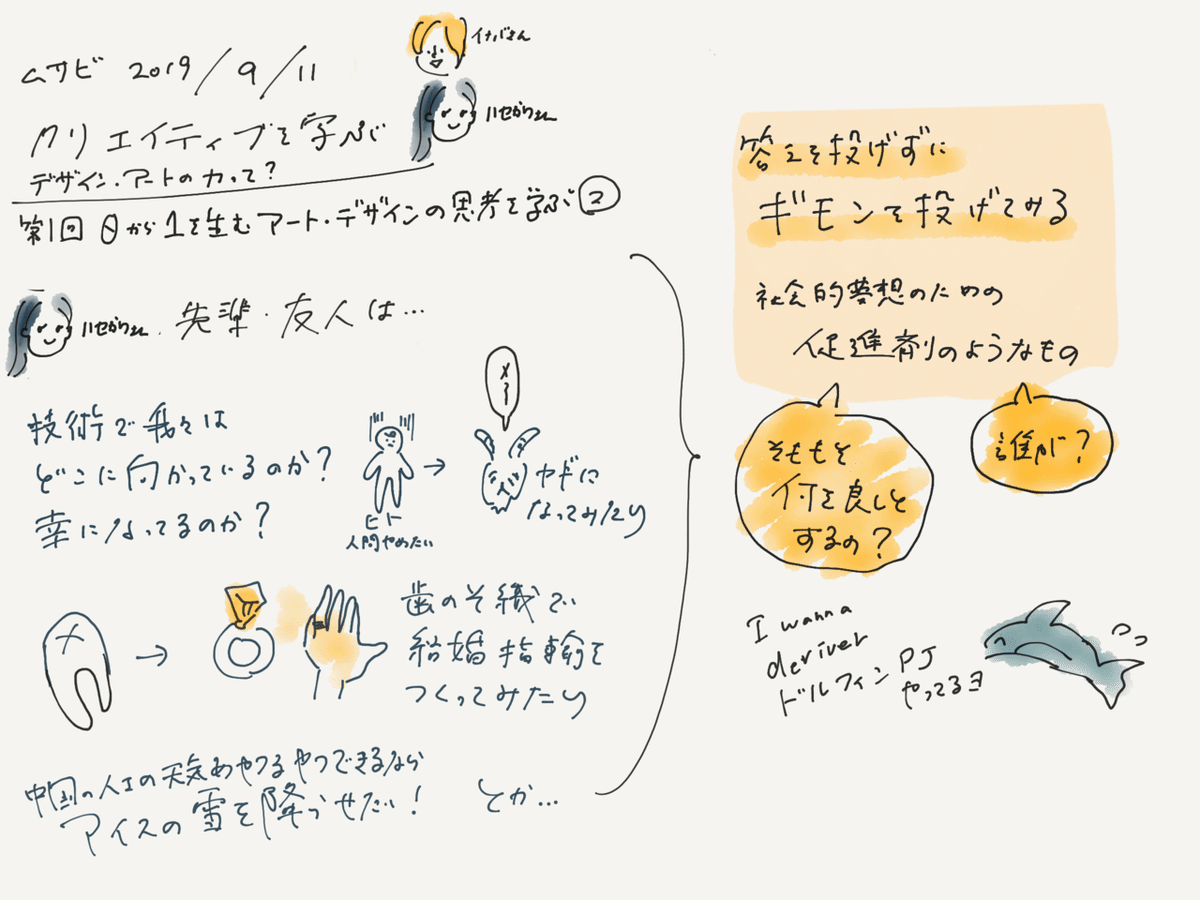 ムサビ 2019/9/11
イナバさん
ハセがワさん
クリエイティブを学ぶ
デザイン・アートの力って?
第1回 0から1を生むアート・デザインの思考を学ぶ②
ハセがワさん
先輩・友人は…
技術で我々は
どこに向かっているのか?
幸になってるのか?
ヒト
人間やめたい
メ〜
ヤギに
なってみたり
歯のそ織で
結婚指輪を
つくってみたり
中国の人工の天気あやつるやつできるなら
アイスの雪を降らせたい!
とか…
答えを投げずに
ギモンを投げてみる
社会的夢想のための
促進剤のようなもの
そももそ
何を良しと
するの?
誰が?
I wanna
deriver
ドルフィンPJ
やってるヨ